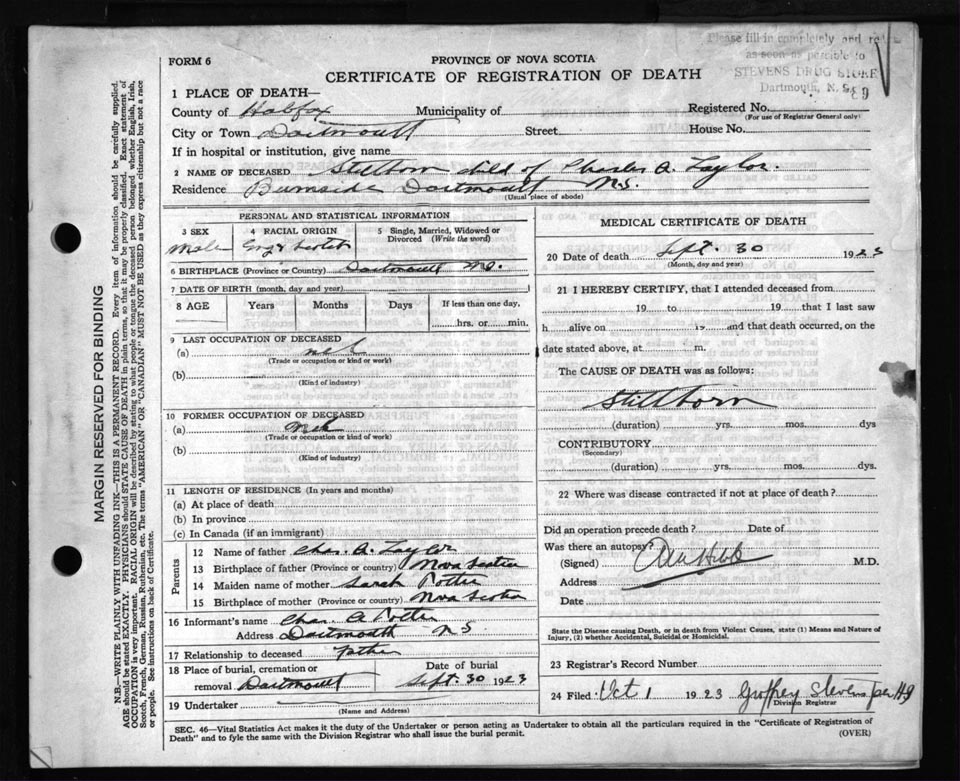 Please fill in completely and
as soon as possible to
STEVENS DRUG STORE
Dartmouth, N. S.
FORM 6
PROVINCE OF NOVA SCOTIA
CERTIFICATE OF REGISTRATION OF DEATH
1 PLACE OF DEATH—
County of Halifax Municipality of Registered No.
(For use of Registrar General only)
City or Town Dartmouth Street House No.
If in hospital or institution, give name
2 NAME OF DECEASED Stillborn child of Charles A. Taylor.
Residence Burnside Dartmouth N.S.
(Usual place of abode)
PERSONAL AND STATISTICAL INFORMATION
3 SEX 4 RACIAL ORIGIN 5 Single, Married, Widowed or
Divorced (Write the word)
Male Eng & Scotch
6 BIRTHPLACE (Province or Country) Dartmouth N.S.
7 DATE OF BIRTH (month, day and year)
8 AGE Years Months Days If less than one day,
hrs. or min.
9 LAST OCCUPATION OF DECEASED
(a)
(Trade or occupation or kind of work)
(b)
(Kind of industry)
10 FORMER OCCUPATION OF DECEASED
(a)
(Trade or occupation or kind of work)
(b)
(Kind of industry)
11 LENGTH OF RESIDENCE (In years and months)
(a) At place of death
(b) In province
(c) In Canada (if an immigrant)
Parents
12 Name of father Chas. A. Taylor
13 Birthplace of father (Province or country) Nova Scotia
14 Maiden name of mother Sarah Potter
15 Birthplace of mother (Province or country) Nova Scotia
16 Informant's name Chas. A Potter
Address Dartmouth N S.
17 Relationship to deceased Father
18 Place of burial, cremation or Date of burial
removal Dartmouth Sept. 30 1923
19 Undertaker
(Name and Address)
MEDICAL CERTIFICATE OF DEATH
20 Date of death Sept. 30 1923
(Month, day and year)
21 I HEREBY CERTIFY, that I attended deceased from
19 to 19 that I last saw
h alive on 19 and that death occurred, on the
date stated above, at m.
The CAUSE OF DEATH was as follows:
Stillborn
(duration) yrs. mos. dys
CONTRIBUTORY
(Secondary)
(duration) yrs. mos. dys.
22 Where was disease contracted if not at place of death?
Did an operation precede death? Date of
Was there an autopsy?
(Signed) M.D.
Address
Date
State the Disease causing Death, or in death from Violent Causes, state (1) Means and Nature of
Injury, (2) whether Accidental, Suicidal or Homicidal.
23 Registrar's Record Number
24 Filed Oct 1 1923 Stevens per
Division Registrar
SEC. 46—Vital Statistics Act makes it the duty of the Undertaker or person acting as Undertaker to obtain all the particulars required in the "Certificate of Registration of
Death" and to fyle the same with the Division Registrar who shall issue the burial permit. (OVER)
MARGIN RESERVED FOR BINDING
N.B.—WRITE PLAINLY WITH UNFADING INK—THIS IS A PERMANENT RECORD. Every item of information should be carefully supplied.
AGE should be stated EXACTLY. PHYSICIANS should STATE CAUSE OF DEATH in plain terms, so that it may be properly classified. Exact statement of
OCCUPATION is very important. RACIAL ORIGIN will be described by stating to what people or tongue the deceased person belonged whether English, Irish,
Scotch, French, German, Russian, Ruthenian, etc. The terms "AMERICAN" OR "CANADIAN" MUST NOT BE USED as they express citizenship but not a race
or people. See instructions on back of Certificate.